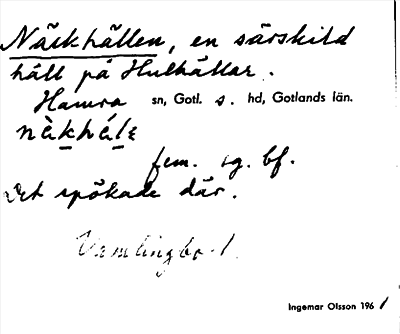 Näckhällen, en särskild
häll på Hulhällar.
Hamra sn, Gotl. s. hd, Gotlands län.
nàkhálɛ
fem. sg. bf.
Det spökade där.
Vamlingbo 1.
Ingemar Olsson 1961